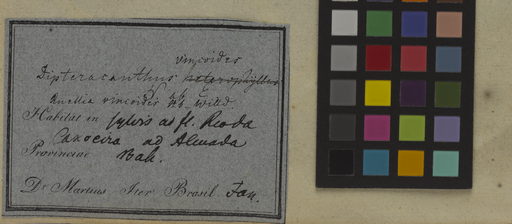 vincoides
Dipteracanthus heterophyllus
Ruellia vincoides Willd
Habitat in sylvis ad fl. Rio da
Caxoeira ad Almada
Provinciae Bah.
Dr Martius Iter Brasil. Jan.